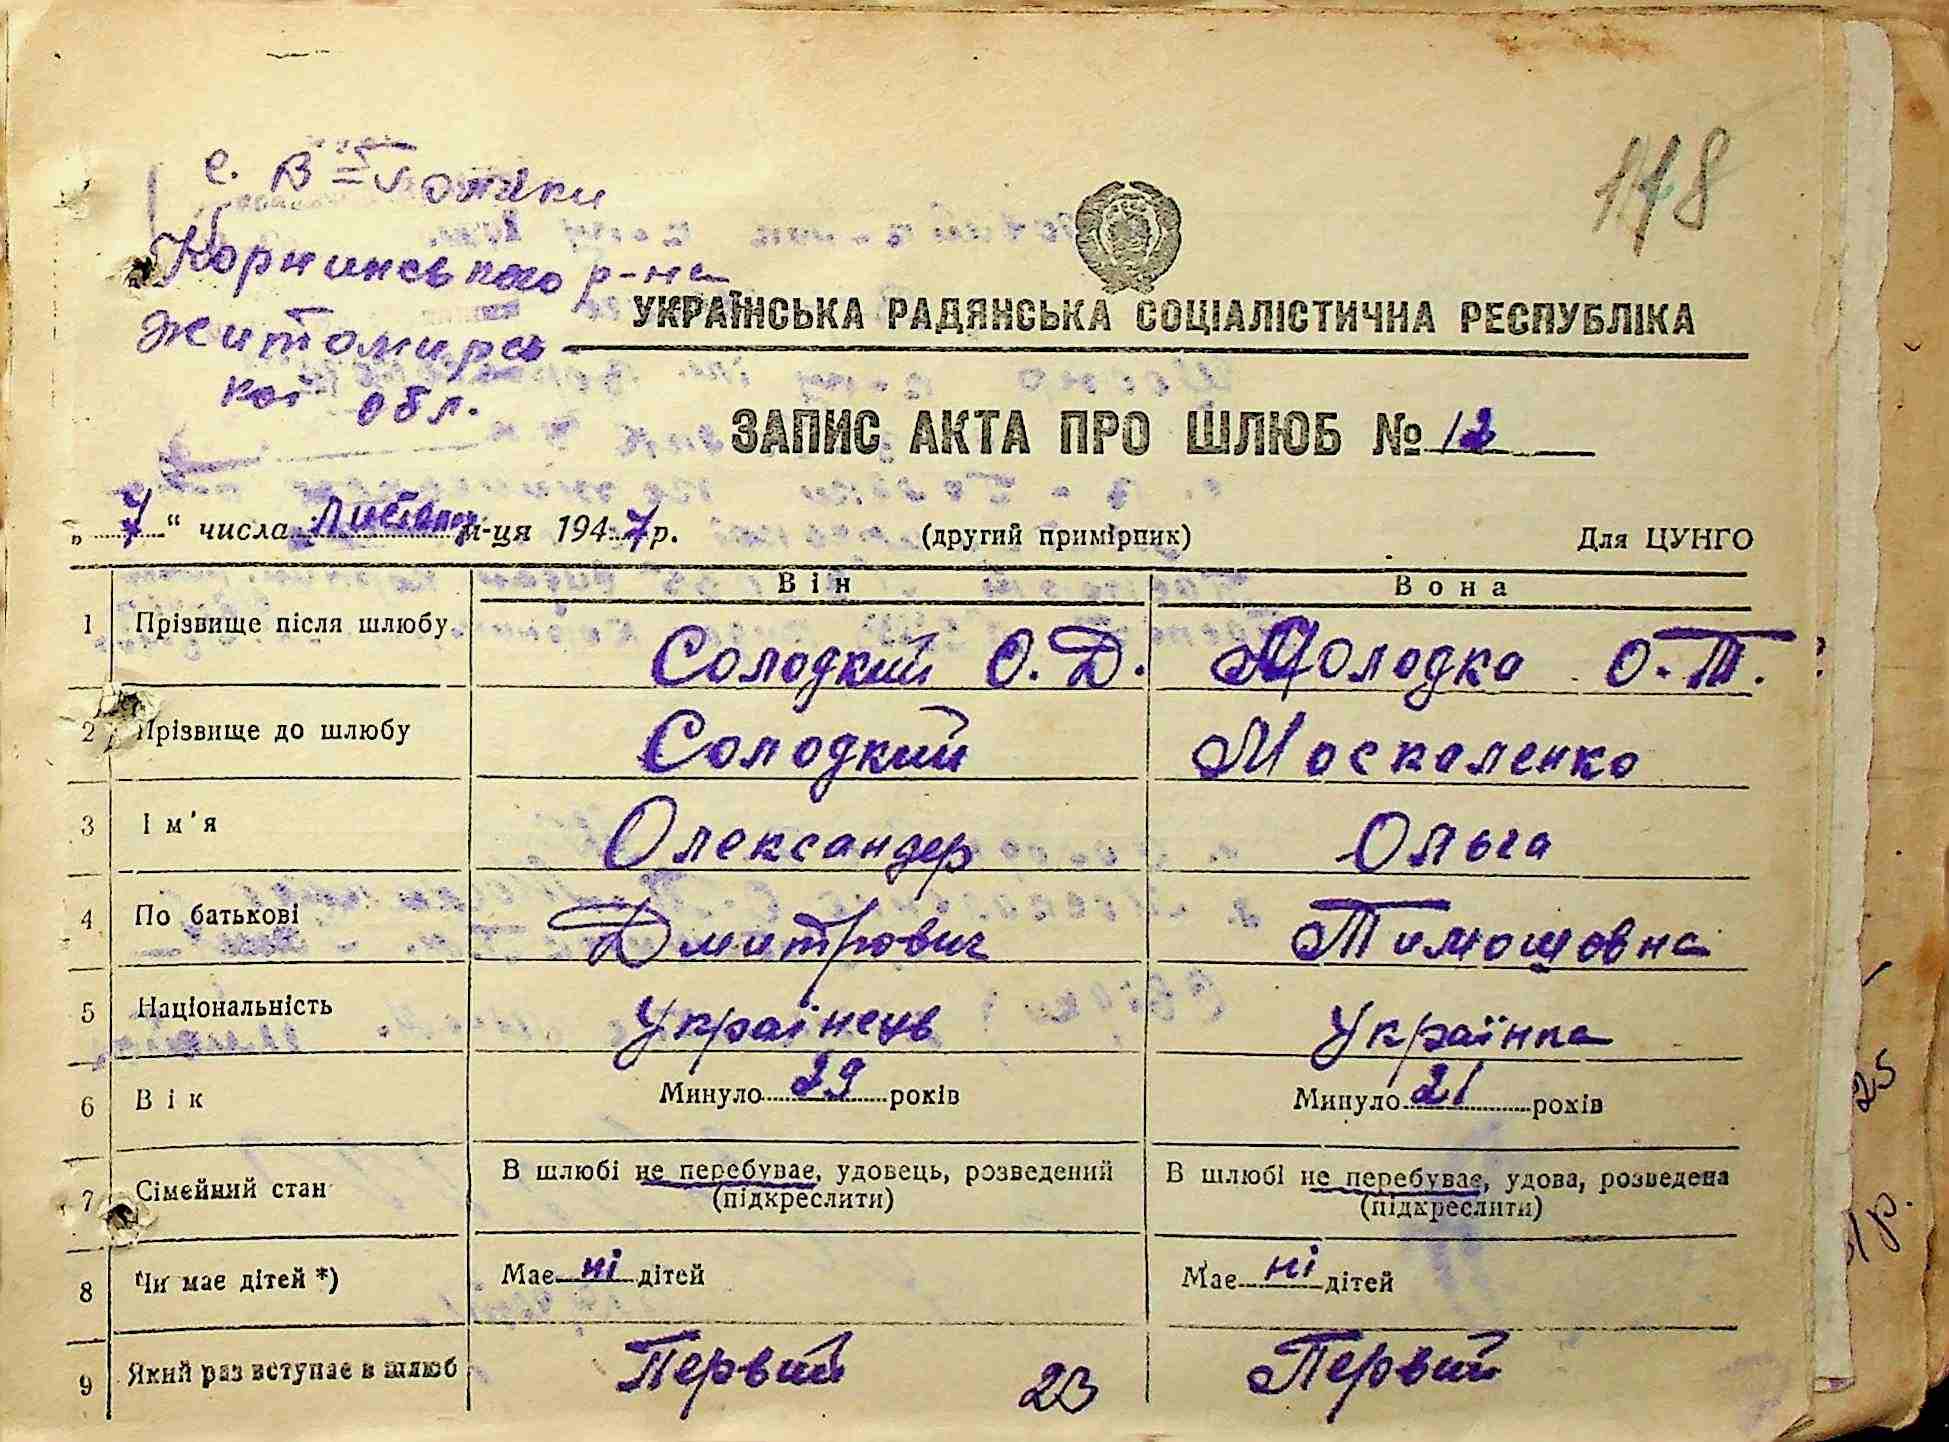 178
с. В=Голяки
Корнинського р-на
Житомирсь
кої обл.
УКРАЇНСЬКА РАДЯНСЬКА СОЦІАЛІСТИЧНА РЕСПУБЛІКА
ЗАПИС АКТА ПРО ШЛЮБ № 12
„ 7 “ числа Листопад м-ця 1947 р. (другий примірник) Для ЦУНГО
Він Вона
1 Прізвище після шлюбу Солодкий О. Д. Солодка О. Т.
2 Прізвище до шлюбу Солодкий Москаленко
3 Ім'я Олександер Ольга
4 По батькові Дмитрович Тимошовна
5 Національність Українець Українка
6 Вік Минуло 29 років Минуло 21 років
7 Сімейний стан В шлюбі не перебуває, удовець, розведений В шлюбі не перебуває, удова, розведена
(підкреслити) (підкреслити)
8 Чи має дітей *) Має ні дітей Має ні дітей
9 Який раз вступає в шлюб Первий Первий
23